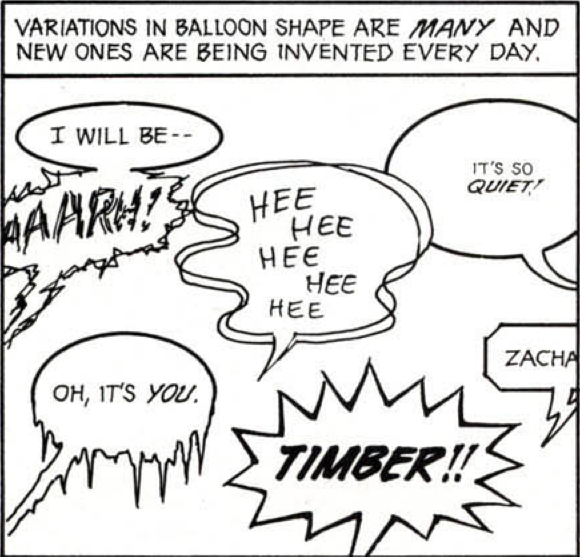 VARIATIONS IN BALLOON SHAPE ARE MANY AND
NEW ONES ARE BEING INVENTED EVERY DAY.
I WILL BE--
AAARH!!
HEE
HEE
HEE
HEE
HEE
IT'S SO
QUIET!
OH, IT'S YOU.
ZACHA
TIMBER!!